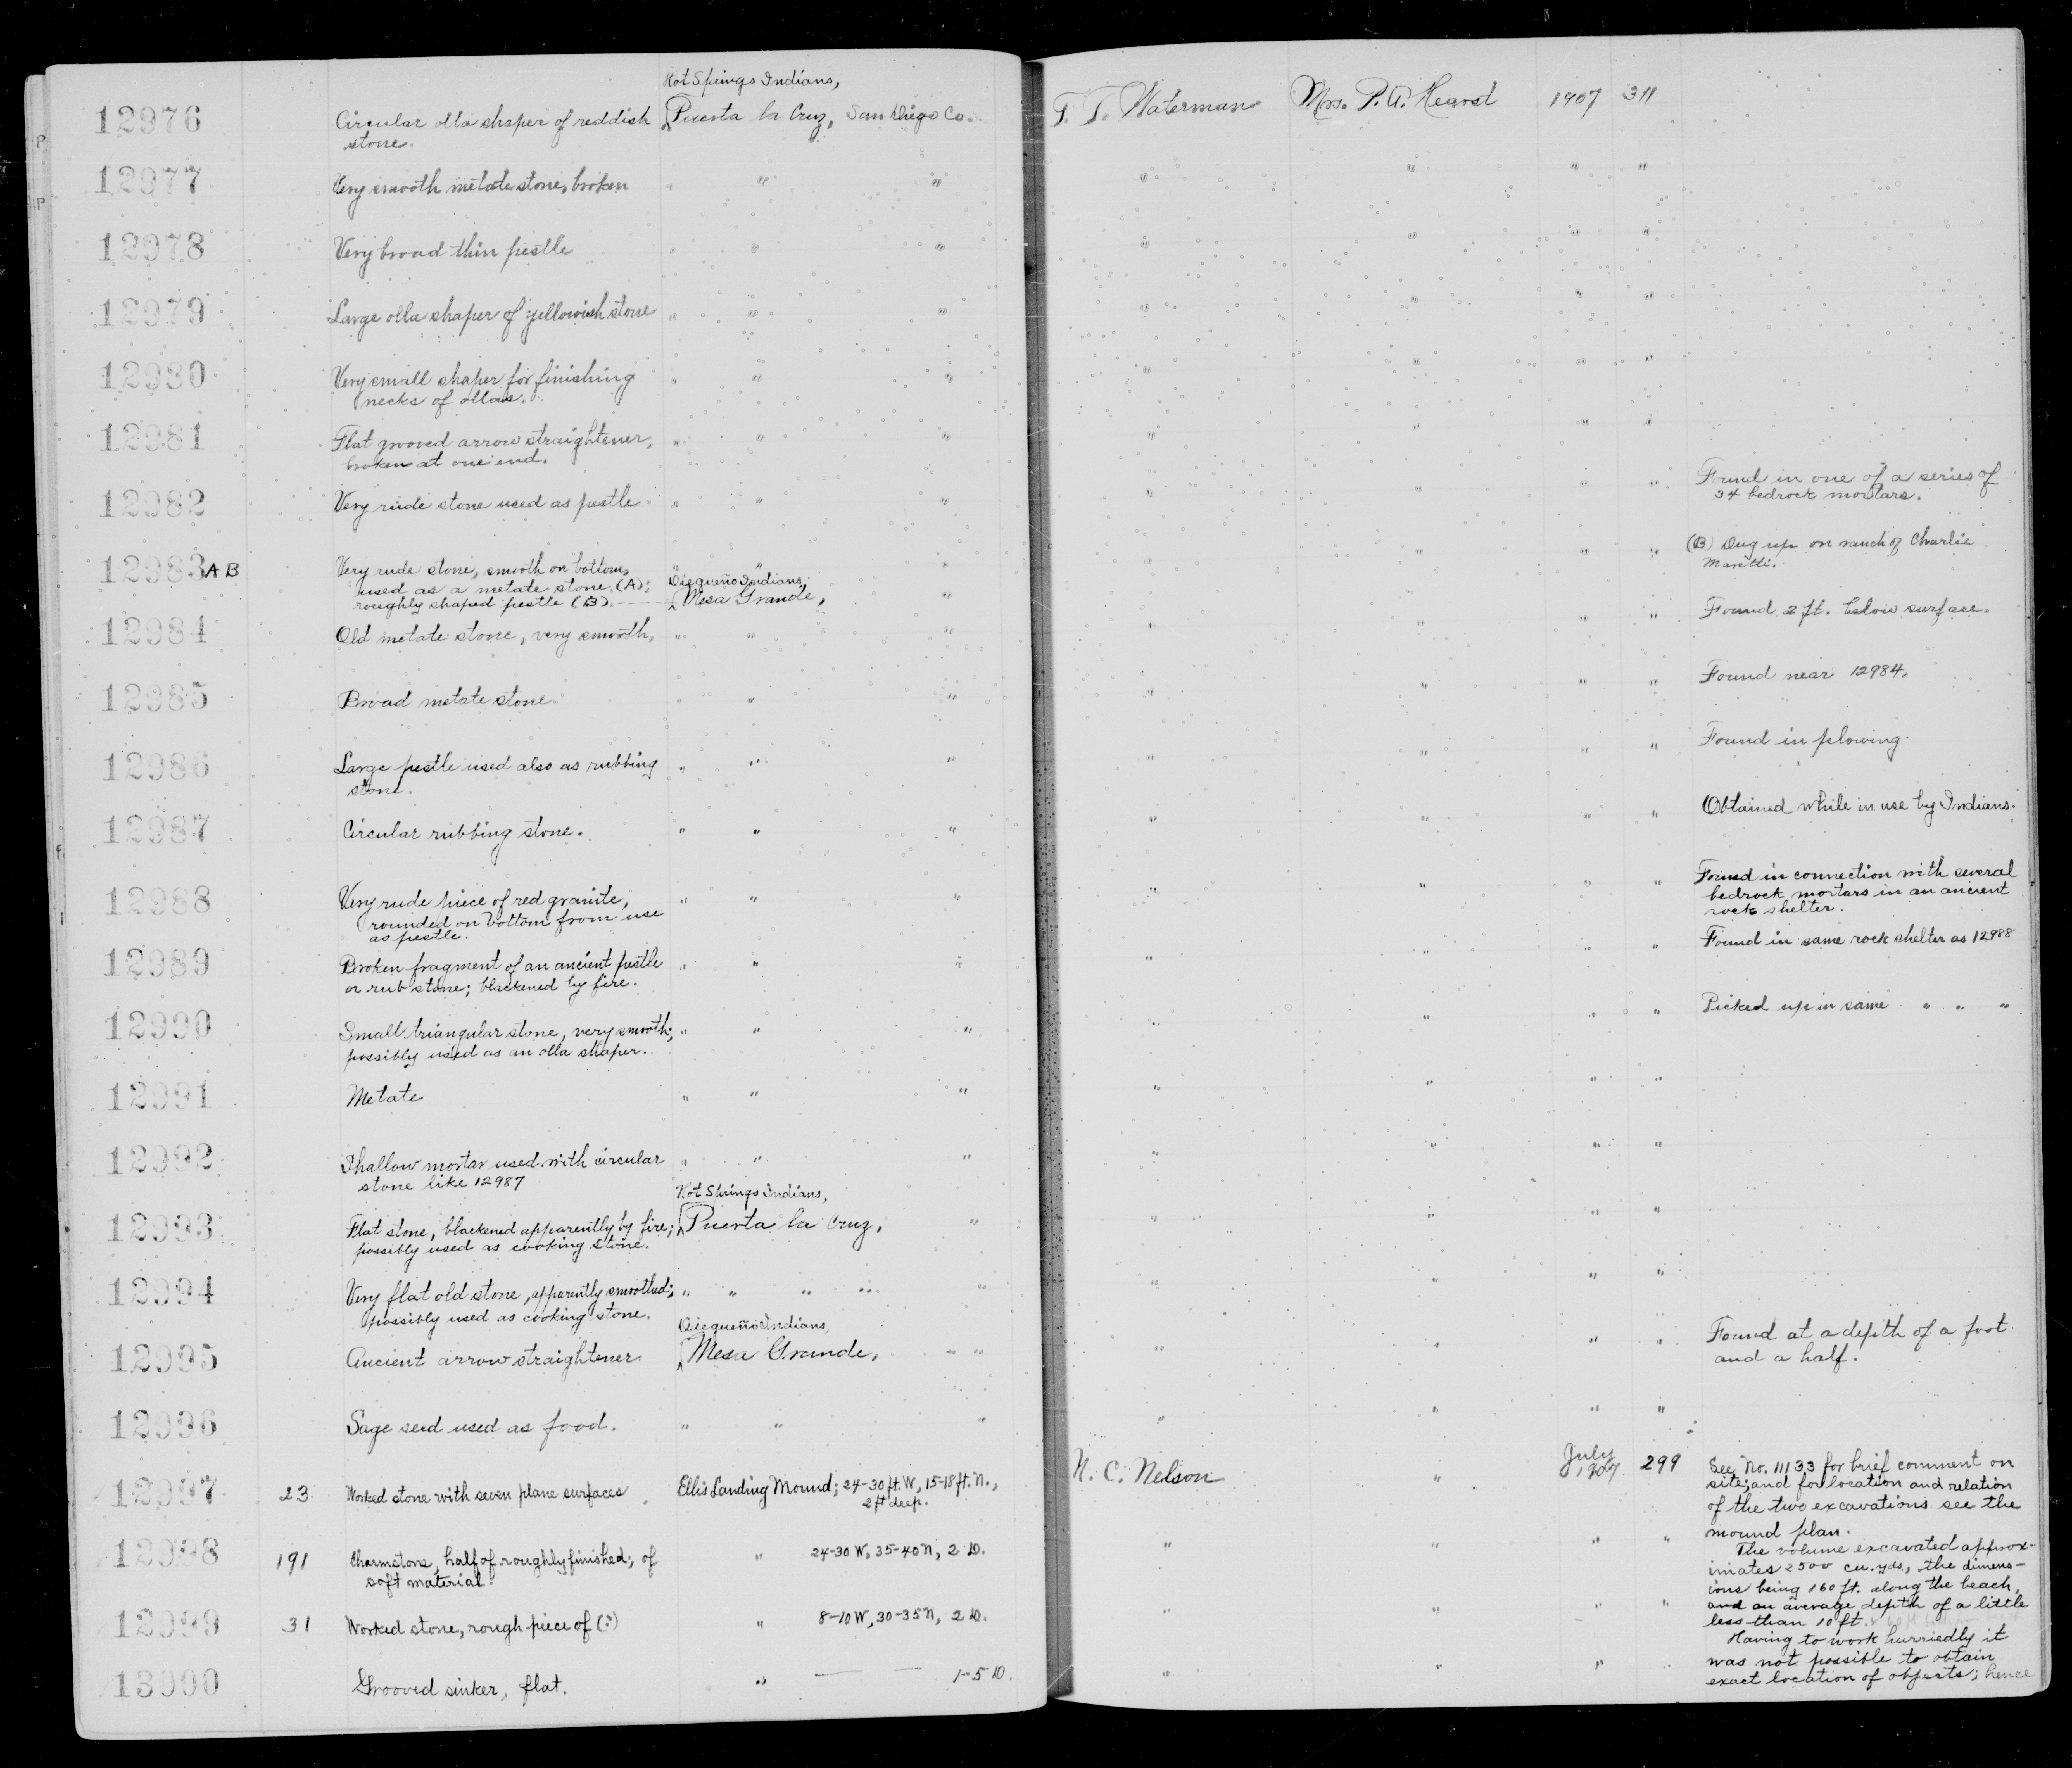 Hot Springs Indians,
12976 Circular olla shaper of reddish Puerta la Cruz, San Diego Co. T. T. Waterman Mrs. P. A. Hearst 1907 311
stone.
12977 Very smooth metate stone, broken " " " " " " "
12978 Very broad thin pestle " " " " " " "
12979 Large olla shaper of yellowish stone " " " " " " "
12980 Very small shaper for finishing " " " " " " "
necks of ollas.
12981 Flat grooved arrow straightener, " " " " " " "
broken at one end.
12982 Very rude stone used as pestle " " " " " " " Found in one of a series of
34 bedrock mortars.
12983 A B Very rude stone, smooth on bottom, " " " " " (B) Dug up on ranch of Charlie
used as a metate stone (A); Diegueño Indians,
roughly shaped pestle (B). Mesa Grande, "
12984 Old metate stone, very smooth, " " " " " " " Found 2 ft. below surface.
12985 Broad metate stone " " " " " " " Found near 12984.
12986 Large pestle used also as rubbing " " " " " " " Found in plowing.
stone.
12987 Circular rubbing stone. " " " " " " " Obtained while in use by Indians.
12988 Very rude piece of red granite, " " " " " " " Found in connection with several
rounded on bottom from use bedrock mortars in an ancient
as pestle. rock shelter.
12989 Broken fragment of an ancient pestle " " " " " " " Found in same rock shelter as 12988
or rub stone; blackened by fire.
12990 Small triangular stone, very smooth; " " " " " " " Picked up in same " " "
possibly used as an olla shaper.
12991 Metate " " " " " " "
12992 Shallow mortar used with circular " " " " " " "
stone like 12987
Hot Springs Indians,
12993 Flat stone, blackened apparently by fire; Puerta la Cruz, " " " " "
possibly used as cooking stone.
12994 Very flat old stone, apparently smoothed; " " " " " " " " "
possibly used as cooking stone.
Diegueño Indians,
12995 Ancient arrow straightener Mesa Grande, " " " " " " Found at a depth of a foot
and a half.
12996 Sage seed used as food. " " " " " " "
12997 23 Worked stone with seven plane surfaces Ellis Landing Mound; 24-30 ft. W, 15-18 ft. N., N. C. Nelson " July 299 See No. 11133 for brief comment on
2 ft deep. 1907 site; and for location and relation
of the two excavations see the
mound plan.
12998 191 Charmstone, half of roughly finished; of " 24-30 W, 35-40 N, 2 D. " " " " The volume excavated approx-
soft material. imates 2500 cu. yds., the dimens-
ions being 160 ft. along the beach,
12999 31 Worked stone, rough piece of (?) " 8-10 W, 30-35 N, 2 D. " " " and an average depth of a little
less than 10 ft.
Having to work hurriedly it
13000 Grooved sinker, flat. " — — 1-5 D. " " " was not possible to obtain
exact location of objects; hence